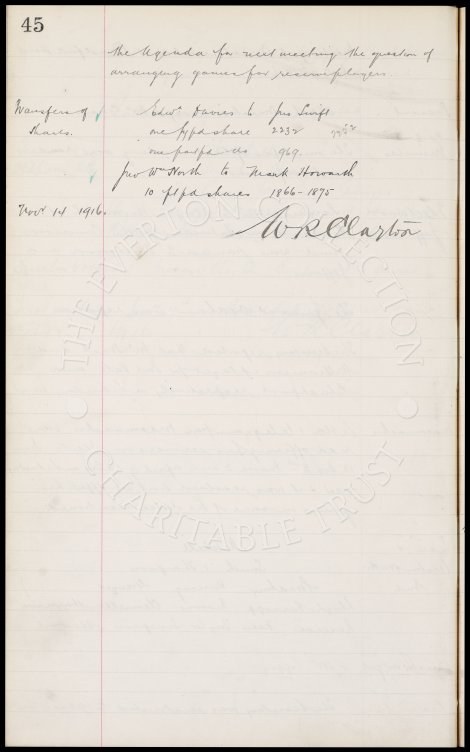 45
the Agenda for next meeting the question of
arranging games for reserve players.
Transfers of Shares.
Edwd Davies to Jno Swift
one fypd share 2232 2252
one partpd do 969.
Jno Wm North to Mark Howarth
10 ptpd shares 1866-1875
Novr 14 1916.
W R Clayton
THE EVERTON COLLECTION
CHARITABLE TRUST